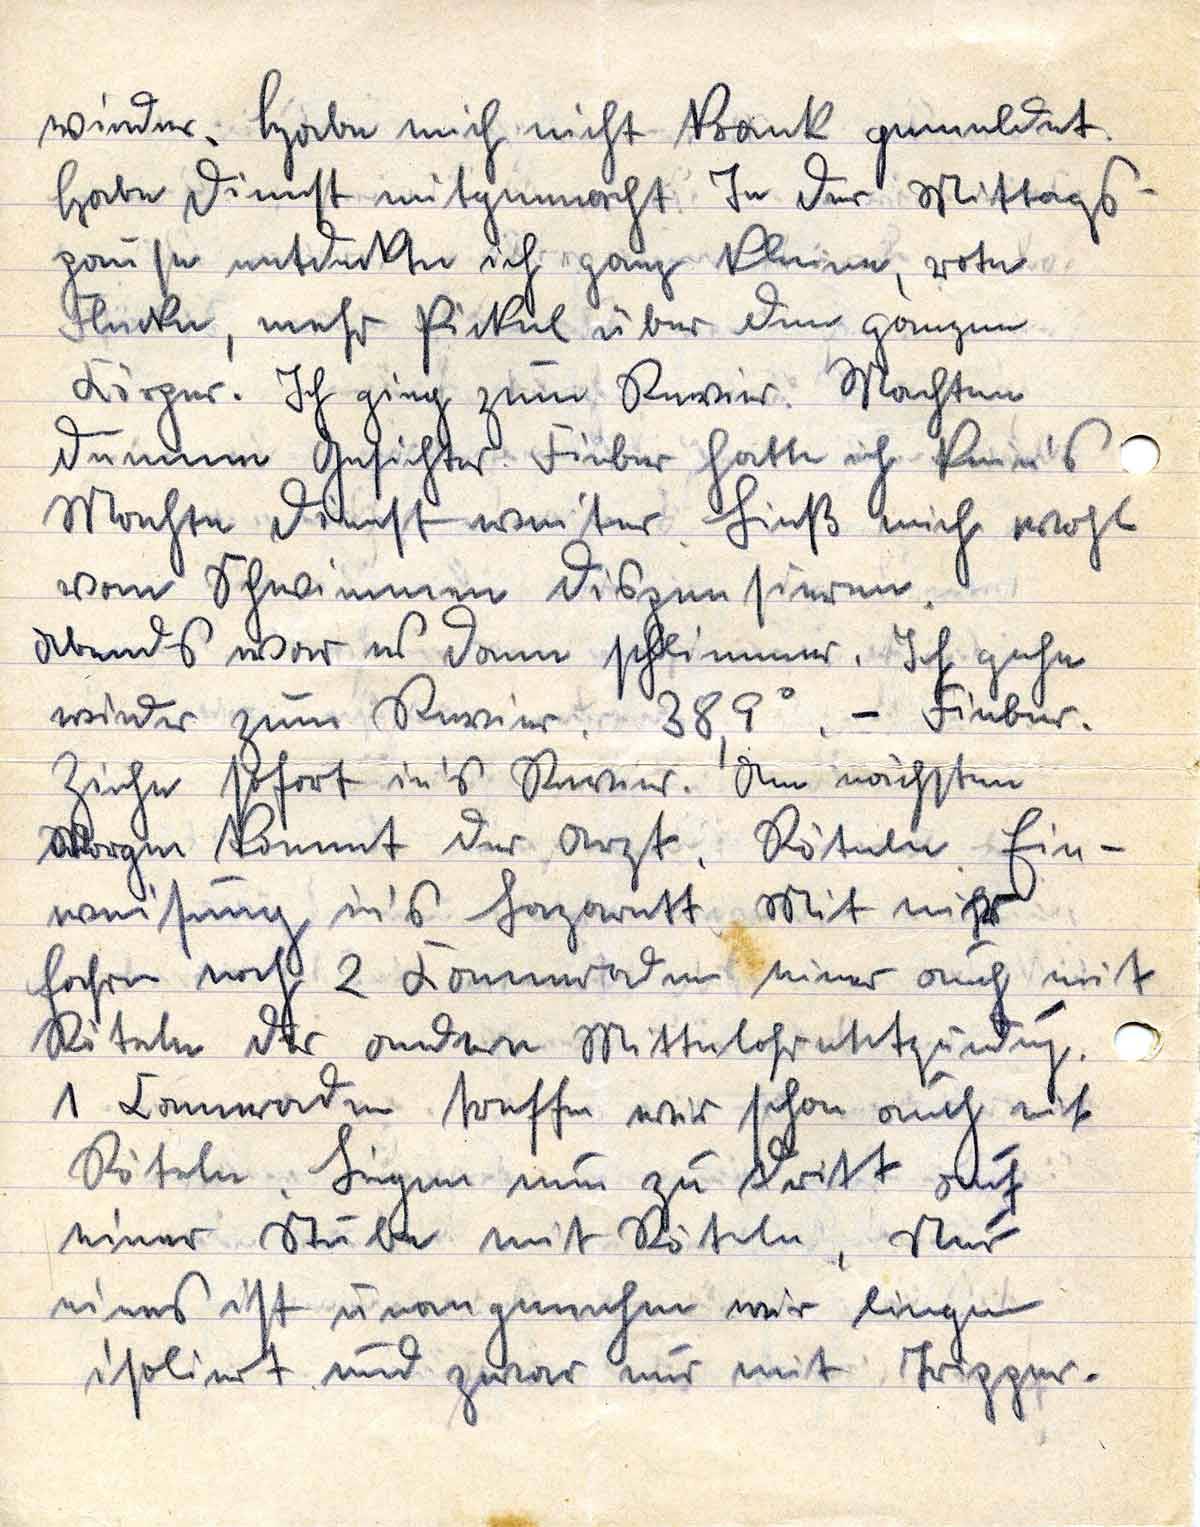 wieder. Habe mich nicht krank gemeldet.
Habe Dienst mitgemacht. In der Mittags-
pause entdeckte ich ganz kleine, rote
Flecke, mehr Pickel über den ganzen
Körper. Ich ging zum Revier. Machten
dumme Gesichter. Fieber hatte ich kein's
Machte Dienst weiter. Ließ mich wohl
vom Schwimmen dispensieren.
Abends war es dann schlimmer. Ich gehe
wieder zum Revier. 38,9°. – Fieber.
Ziehe sofort in's Revier. Am nächsten
Morgen kommt der Arzt. Röteln. Ein-
weisung in's Lazarett. Mit mir
fahren noch 2 Kameraden einer auch mit
Röteln der andere Mittelohrentzündung.
1 Kameraden treffen wir schon auch mit
Röteln. Liegen nun zu dritt auf
einer Stube mit Röteln. Nur
eines ist unangenehm wir liegen
isoliert und zwar nur mit Tripper.